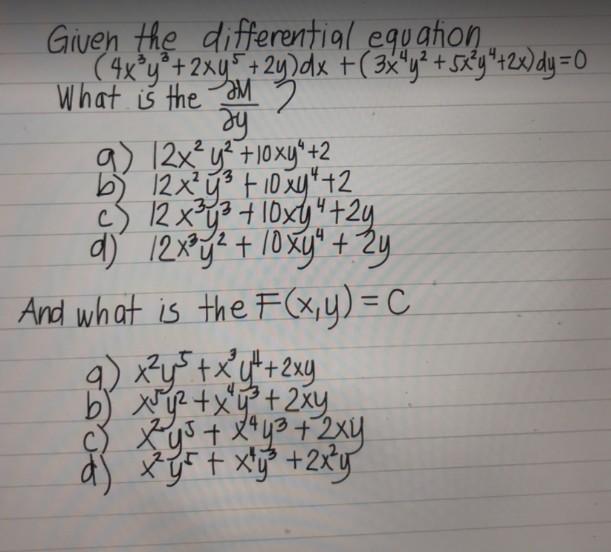 Given the differential equation
(4x³y³+2xy⁵+2y)dx+(3x⁴y²+5x²y⁴+2x)dy=0
What is the ∂M/∂y ?
a) 12x²y²+10xy⁴+2
b) 12x²y³+10xy⁴+2
c) 12x³y³+10xy⁴+2y
d) 12x³y²+10xy⁴+2y
And what is the F(x,y)=C
a) x²y⁵+x³y⁴+2xy
b) x⁵y²+x⁴y³+2xy
c) x²y⁵+x⁴y³+2xy
d) x²y⁵+x⁴y³+2x²y